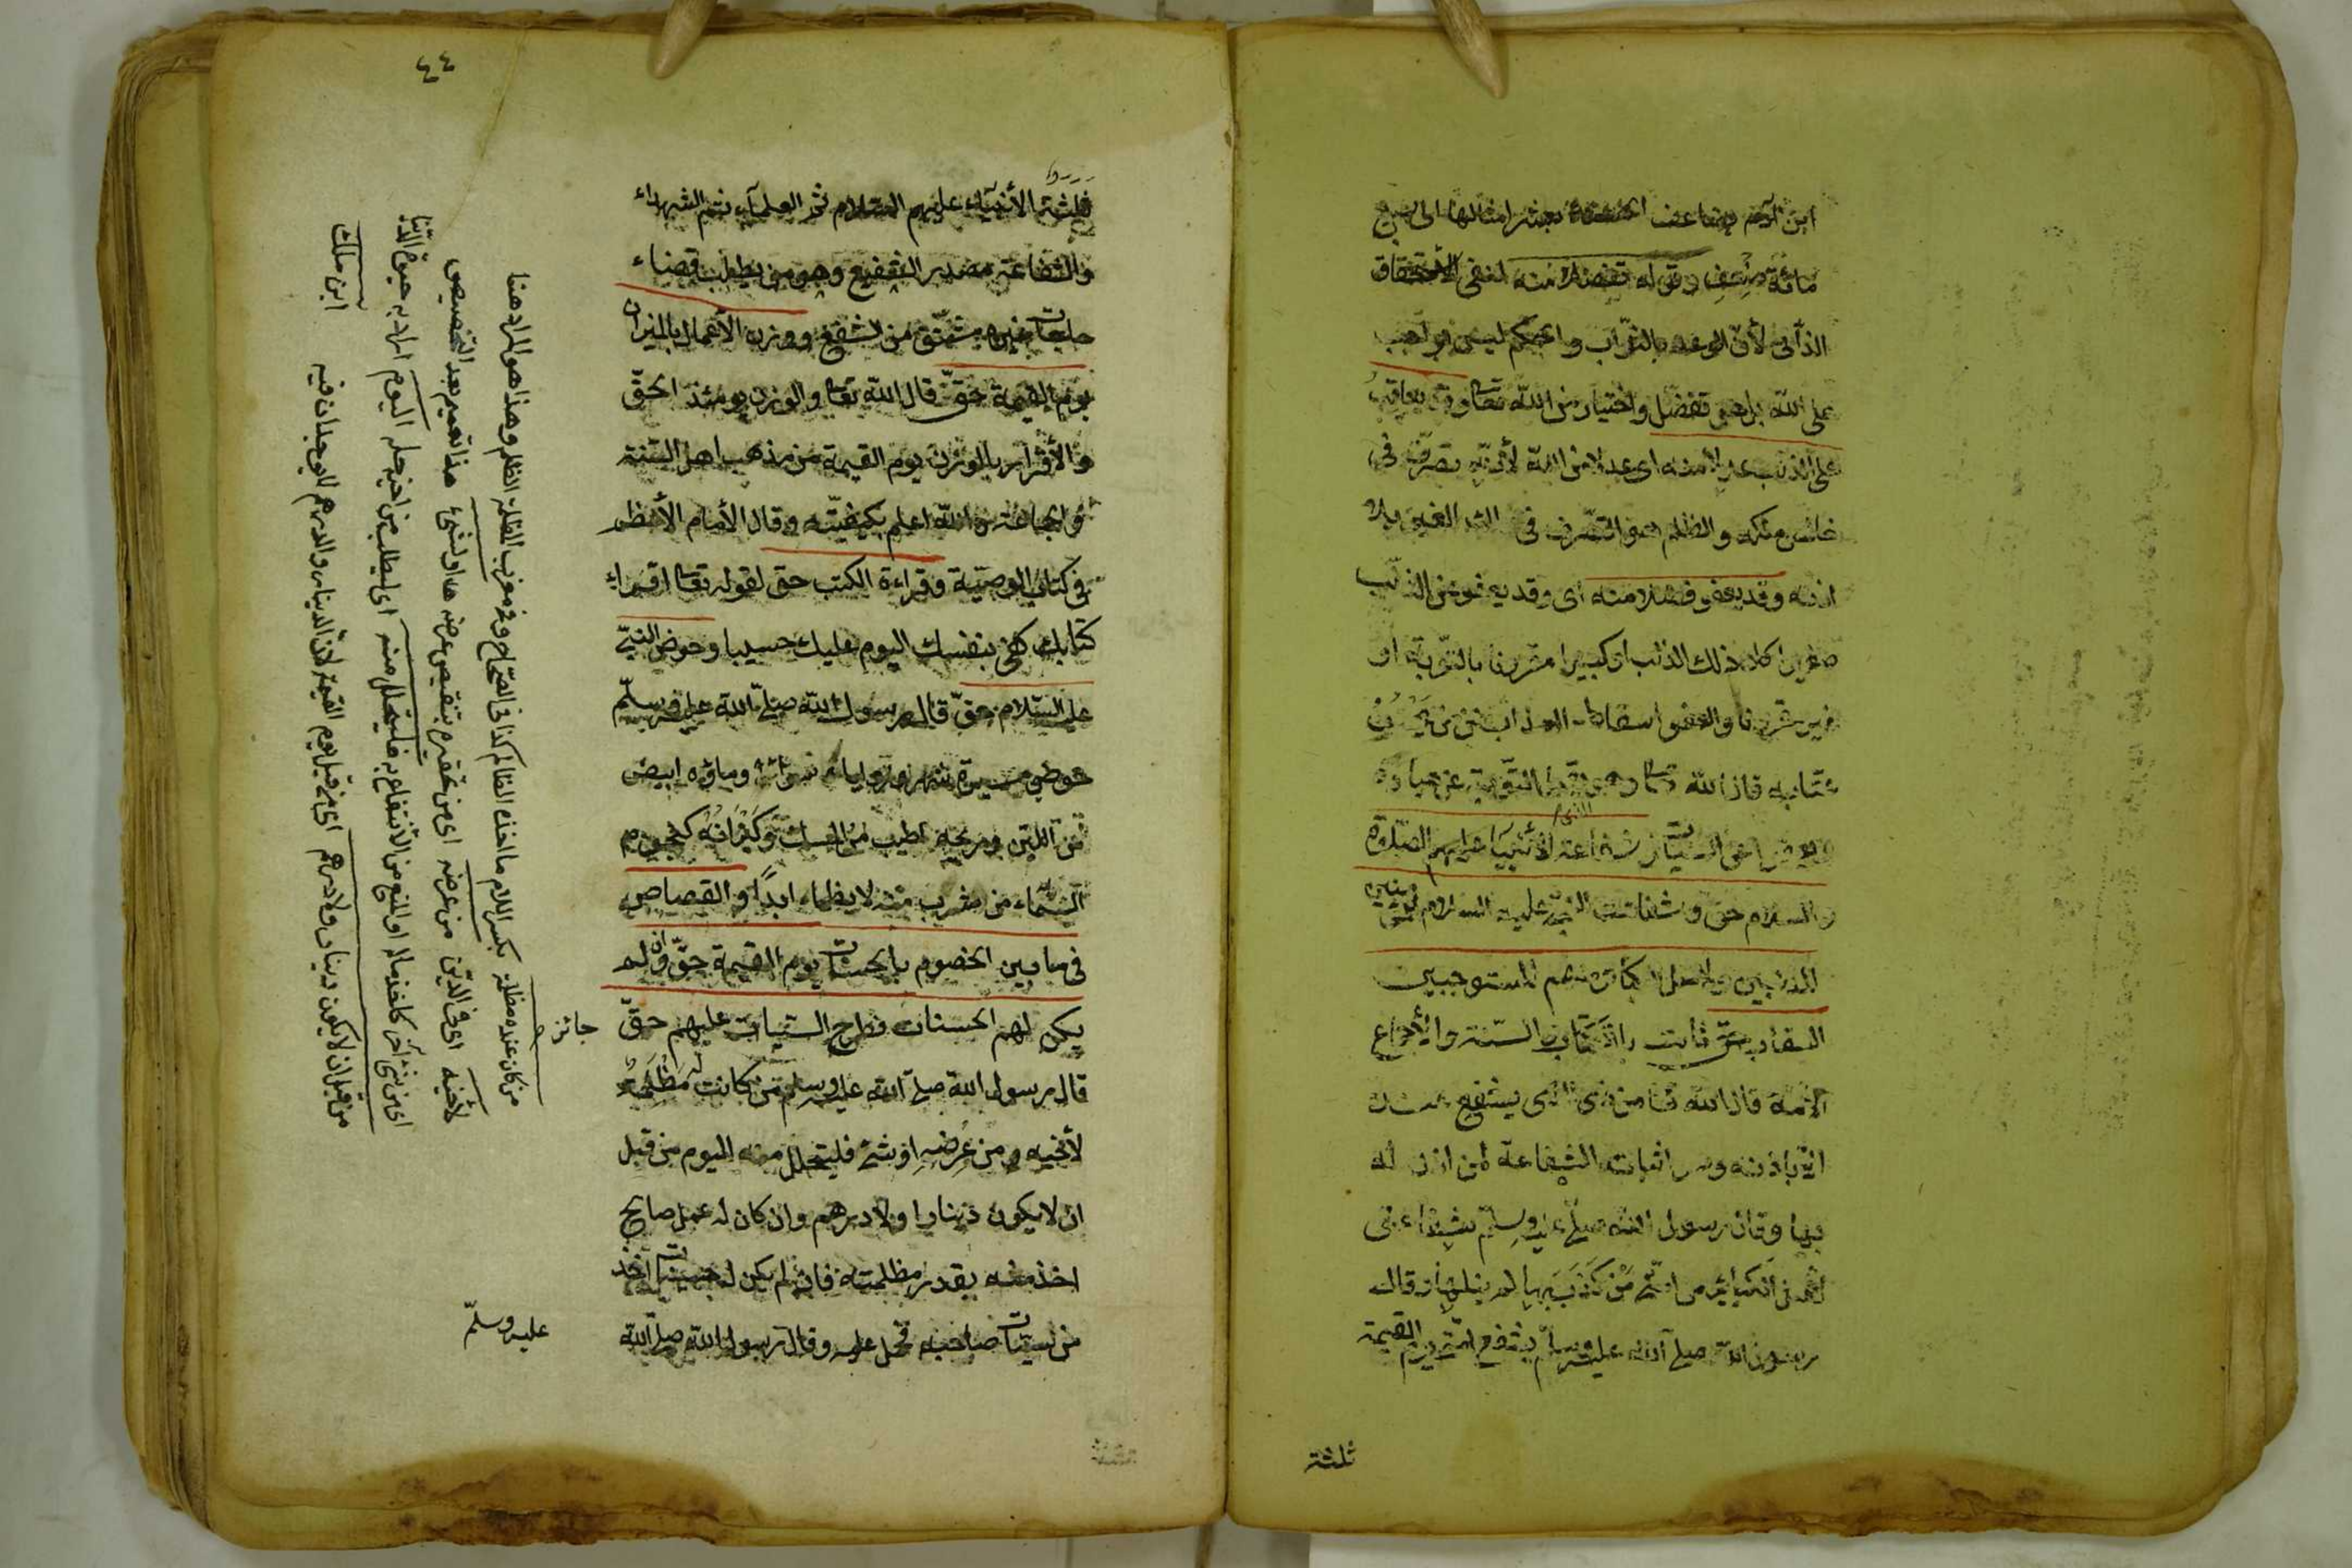 ابن آدم يضاعف الحسنة بعشر امثالها الى سبع
مائة ضعف وقوله تفضلا منه لنفى الاستحقاق
الذاتى لأن الوعد بالثواب والحكم ليس بواجب
على الله بل هو تفضل واختيار من الله تعا وقد يعاقب
على الذنب عدلا منه اى عدلا من الله لأنه تصرف فى
خالص ملكه والظلم هو التصرف فى ملك الغير بلا
اذنه وقد يعفو فضلا منه اى وقد يعفو عن الذنب
صغيرا كان ذلك الذنب او كبيرا مقرونا بالتوبة او
غير مقرون والعفو اسقاط العذاب عن من يحسن
عقابه قال الله تعا وهو الذى يقبل التوبة عن عباده
ويعفوا عن السيئات شفاعة الأنبياء عليهم الصلوة
والسلام حق وشفاعة النبى عليه السلام للمؤمنين
المذنبين ولاهل الكبائر منهم المستوجبين
العقاب حق ثابت بالكتاب والسنة والأجماع
الأمة قال الله تعا من ذى الذى يشفع عنده
الا باذنه وهو اثبات الشفاعة لمن اذن له
بها وقال رسول الله صلى عليه وسلم شفاعتى
لاهل الكبائر من امتى من كذب بها لم ينلها وقال
رسول الله صلى الله عليه وسلم يشفع امتى يوم القيمة
ثلثة
٤٤
ثلثة الأنبياء عليهم السلام ثم العلماء ثم الشهداء
والشفاعة مصدر الشفيع وهو من يطلب قضاء
حاجات غيره مشتق من الشفع ووزن الأعمال بالميزان
يوم القيمة حق قال الله تعا والوزن يومئذ الحق
والأقرار بالوزن يوم القيمة من مذهب اهل السنة
والجماعة والله اعلم بكيفيته وقال الأمام الأعظم
فى كتاب الوصية وقراءة الكتب حق لقوله تعا اقراء
كتابك كفى بنفسك اليوم عليك حسيبا وحوض النبى
عليه السلام حق قال رسول الله صلى الله عليه وسلم
حوضى مسيرة شهر وزواياه سواء وماؤه ابيض
من اللبن وريحه اطيب من المسك وكيزانه كنجوم
السماء من شرب منه لا يظماء ابدا والقصاص
فى ما بين الخصوم بالحسنات يوم القيمة حق فان لم
يكن لهم الحسنات فطرح السيات عليهم حق
جائز
قال رسول الله صلى الله عليه وسلم من كانت له مظلمة
لأخيه من عرضه او شئ فليتحلل منه اليوم من قبل
ان لا يكون دينارا ولا درهم وان كان له عمل صالح
اخذ منه بقدر مظلمته فان لم يكن له حسنات اخذ
من سيئات صاحبه فحمل عليه وقال رسول الله صلى الله
عليه وسلم
من كان عنده مظلمة بكسر اللام ما اخذه الظالم كذا فى الصحاح وفى مغرب المظلمة الظلم وهذا هو المراد هنا
لأخيه اى فى الدين من عرضه اى من تحقيره بتنقيص عرضه هذا او لشئ هذا تعميم بعد التخصيص
اى من شئ آخر كاخذ ماله او المنع من الأنتفاع به فليتحلل منه اى ليطلب من اخيه حله اليوم اراد به حيوة الدنيا
من قبل ان لا يكون دينار ولا درهم اى من قبل يوم القيمة لأن الدينار والدرهم لا يوجدان فيه
ابن ملك